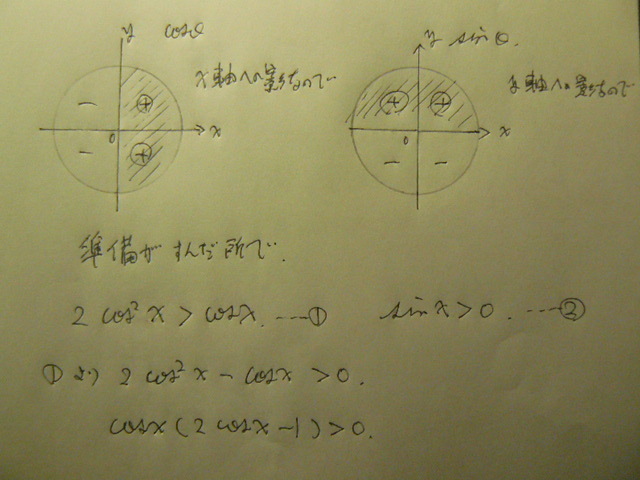 y cosθ
x軸への影なので
− ⊕
0 x
− ⊕
y sinθ.
y軸への影なので
⊕ ⊕
0 x
− −
準備がすんだ所で.
2 cos²x > cosx. ---- ①
sin x > 0. ---- ②
① より 2 cos²x − cosx > 0.
cosx (2 cosx − 1) > 0.